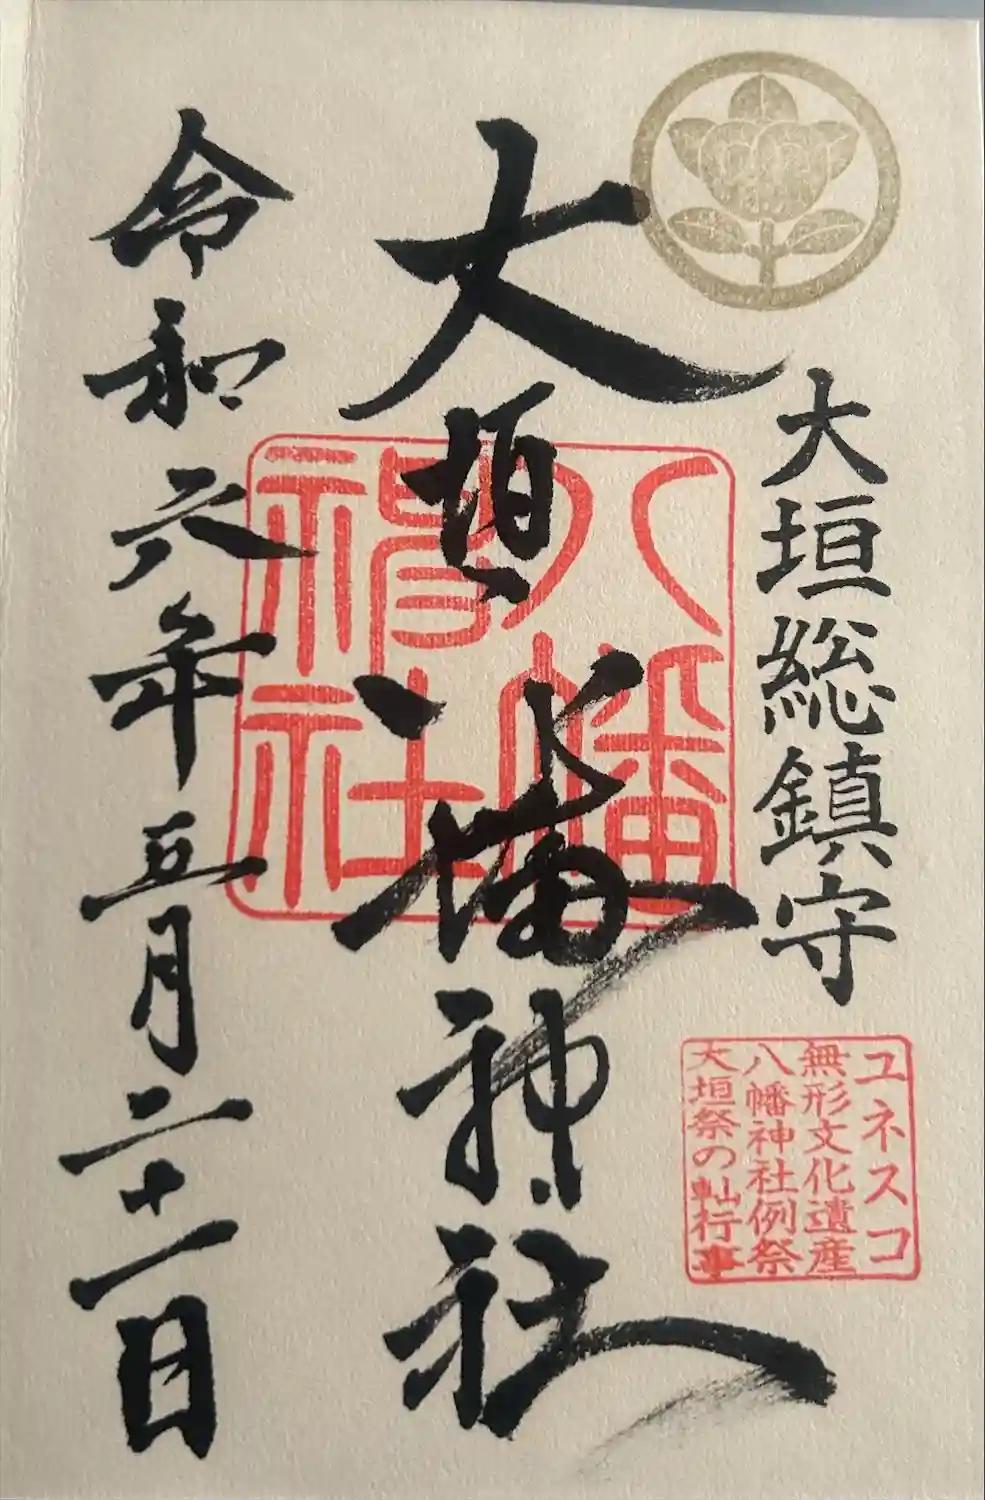 大垣総鎮守
ユネスコ
無形文化遺産
八幡神社例祭
大垣祭の軕行事
大垣八幡神社
八幡
神社
令和六年五月二十一日